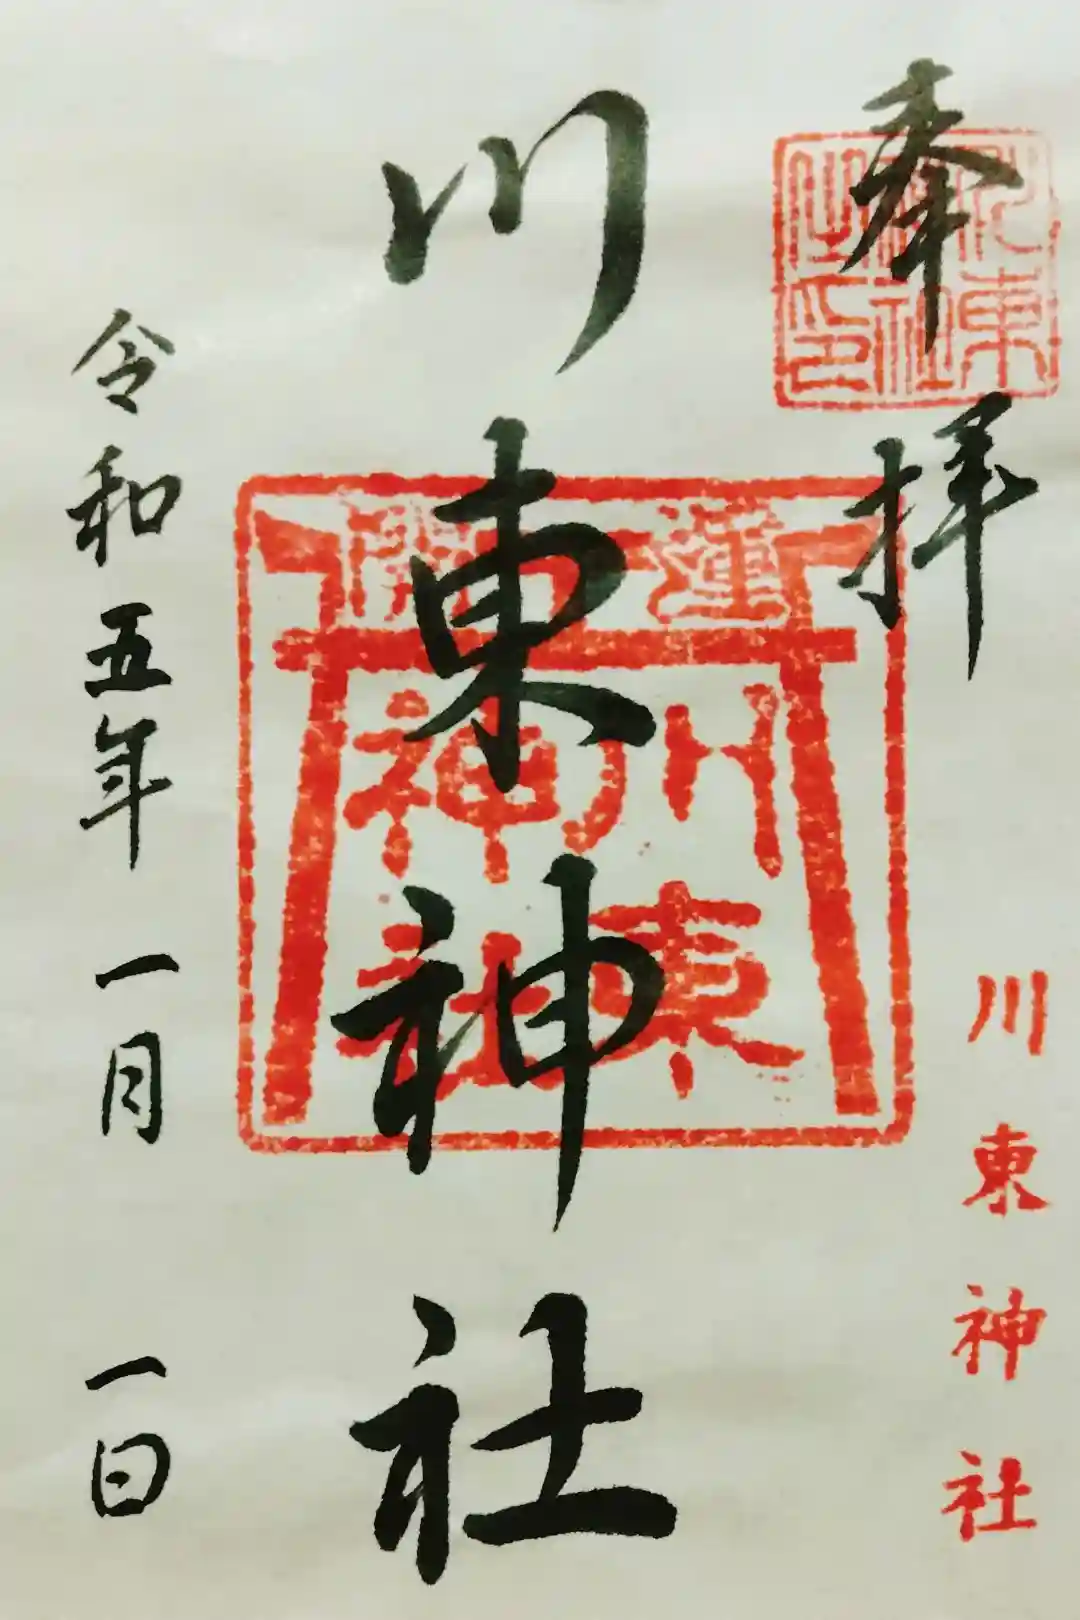 奉拝
川東神社之印
川東神社
川東神社
開運
川東神社
令和五年一月一日